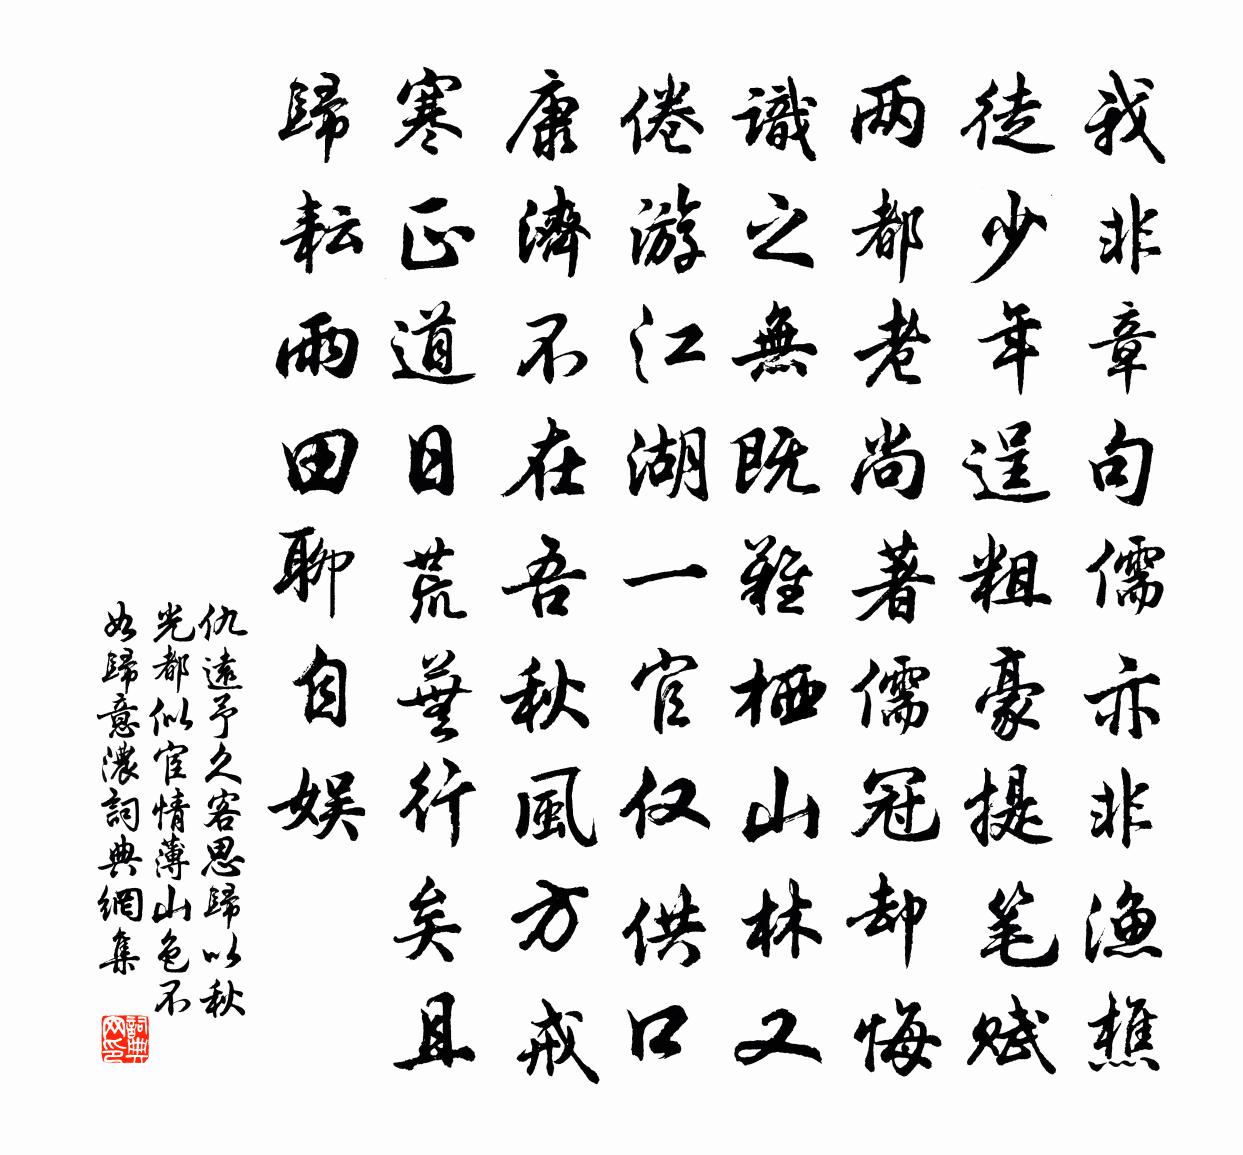 我非章句儒亦非漁樵
徒少年逞粗豪提笔赋
两都老尚著儒冠却悔
識之無既難栖山林又
倦游江湖一官仅供口
康濟不在吾秋風方戒
寒正道日荒蕪行矣且
歸耘雨田聊自娱
仇遠予久客思歸以秋
光都似宦情薄山色不
如歸意濃詞典網集
詞典网印